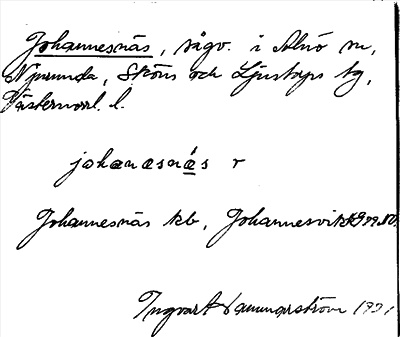 Johannesnäs, sågv. i Alnö sn,
Njurunda, Sköns och Ljustorps tg,
Västernorrl. l.
johanəsnä́s r
Johannesnäs kb, Johannesvik
Ingvart Hammarström 1931